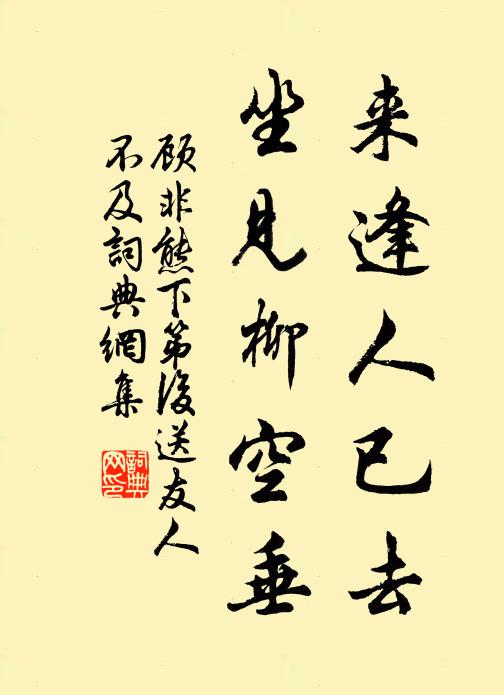 来逢人已去
坐见柳空垂
顾非熊下第后送友人
不及詞典網集
詞典网印